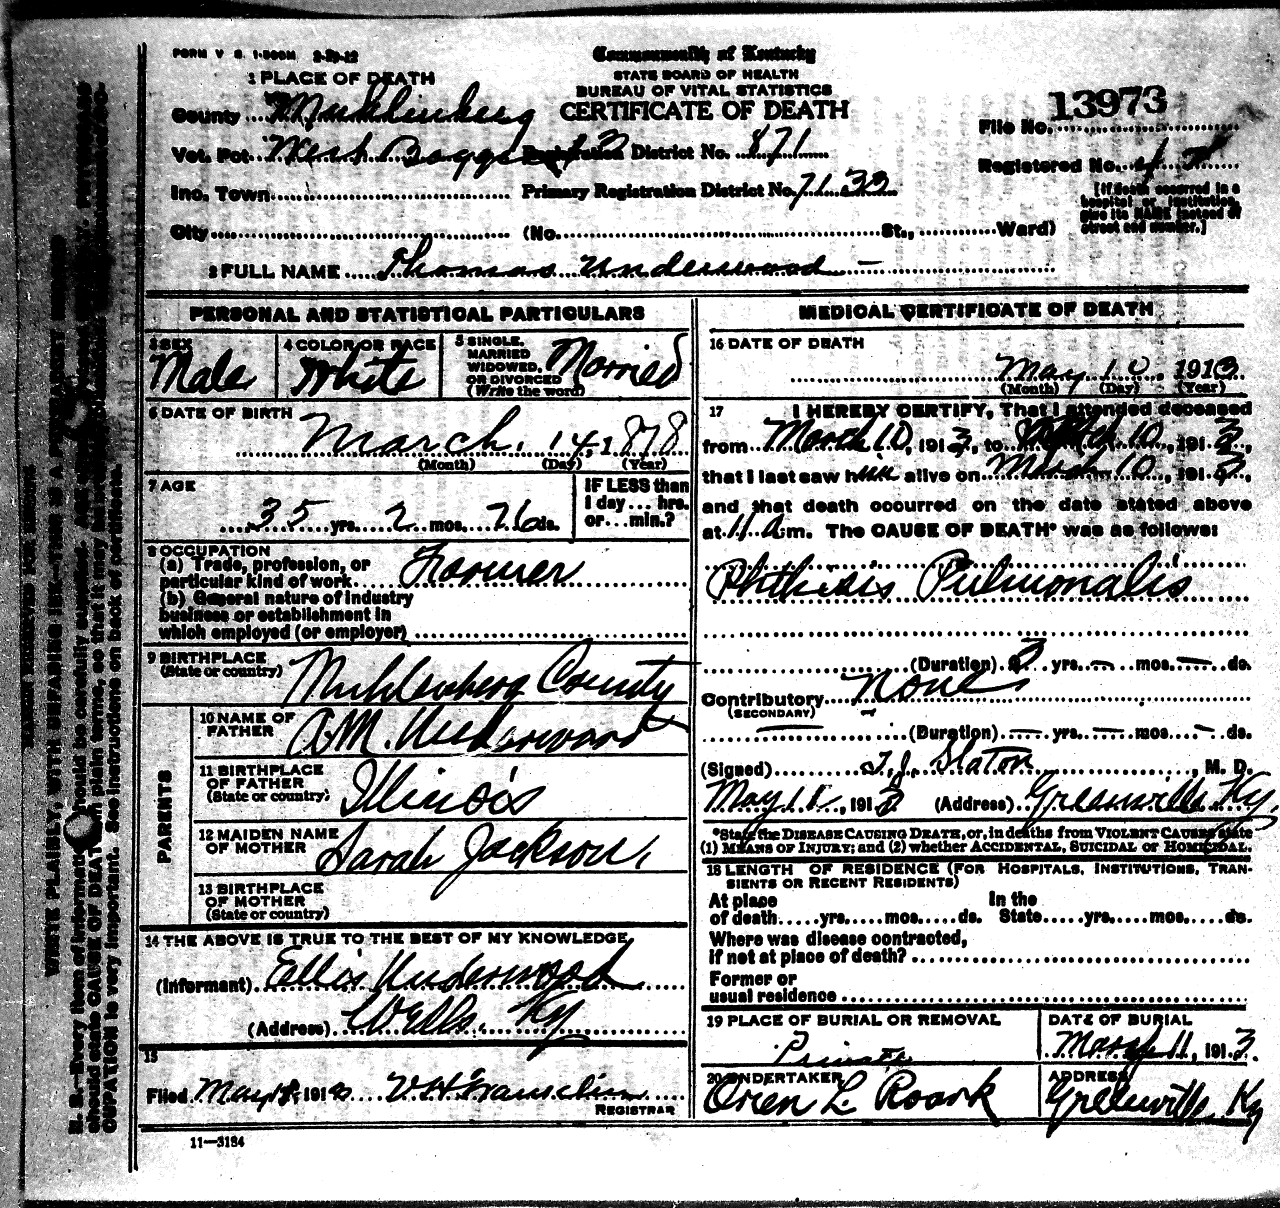 FORM V S. 1-500M 2-29-12
Commonwealth of Kentucky
STATE BOARD OF HEALTH
BUREAU OF VITAL STATISTICS
CERTIFICATE OF DEATH
13973
File No.
Registered No.
[If death occurred in a hospital or institution, give its NAME instead of street and number.]
1 PLACE OF DEATH
County Muhlenberg
Vot. Pct. West Boggs Registration District No. 871
Inc. Town Primary Registration District No. 7133
City (No. St., Ward)
2 FULL NAME Thomas Underwood
PERSONAL AND STATISTICAL PARTICULARS
3 SEX
Male
4 COLOR OR RACE
White
5 SINGLE, MARRIED WIDOWED, OR DIVORCED (Write the word)
Married
6 DATE OF BIRTH
March 14, 1878
(Month) (Day) (Year)
7 AGE
35 yrs. 2 mos. 26 ds.
IF LESS than 1 day ... hrs. or ... min.?
8 OCCUPATION
(a) Trade, profession, or
particular kind of work Farmer
(b) General nature of industry
business or establishment in
which employed (or employer)
9 BIRTHPLACE
(State or country) Muhlenberg County
PARENTS
10 NAME OF FATHER A.M. Underwood
11 BIRTHPLACE OF FATHER (State or country) Illinois
12 MAIDEN NAME OF MOTHER Sarah Jackson
13 BIRTHPLACE OF MOTHER (State or country)
14 THE ABOVE IS TRUE TO THE BEST OF MY KNOWLEDGE
(Informant) Ellis Underwood
(Address) Wells, Ky
15
Filed May 191 V.H. Franklin
REGISTRAR
11—3184
MEDICAL CERTIFICATE OF DEATH
16 DATE OF DEATH
May 10, 1913
(Month) (Day) (Year)
17 I HEREBY CERTIFY, That I attended deceased
from March 10, 1913, to March 10, 1913,
that I last saw him alive on March 10, 1913,
and that death occurred on the date stated above
at 11 a m. The CAUSE OF DEATH* was as follows:
Phthisis Pulmonalis
(Duration) 3 yrs. — mos. — ds.
Contributory None
(SECONDARY)
(Duration) — yrs. — mos. — ds.
(Signed) T.J. Slaton, M. D.
May 11, 1913 (Address) Greenville Ky.
*State the DISEASE CAUSING DEATH, or, in deaths from VIOLENT CAUSES state
(1) MEANS OF INJURY; and (2) whether ACCIDENTAL, SUICIDAL OR HOMICIDAL.
18 LENGTH OF RESIDENCE (FOR HOSPITALS, INSTITUTIONS, TRANSIENTS OR RECENT RESIDENTS)
At place In the
of death yrs. mos. ds. State yrs. mos. ds.
Where was disease contracted,
if not at place of death?
Former or
usual residence
19 PLACE OF BURIAL OR REMOVAL
Private
DATE OF BURIAL
May 11, 1913
20 UNDERTAKER
Orien L. Roark
ADDRESS
Greenville, Ky
WRITE PLAINLY, WITH UNFADING INK—THIS IS A PERMANENT RECORD
N. B.—Every item of information should be carefully supplied.
should state CAUSE OF DEATH in plain terms, so that it may be
OCCUPATION is very important. See instructions on back of certificate.